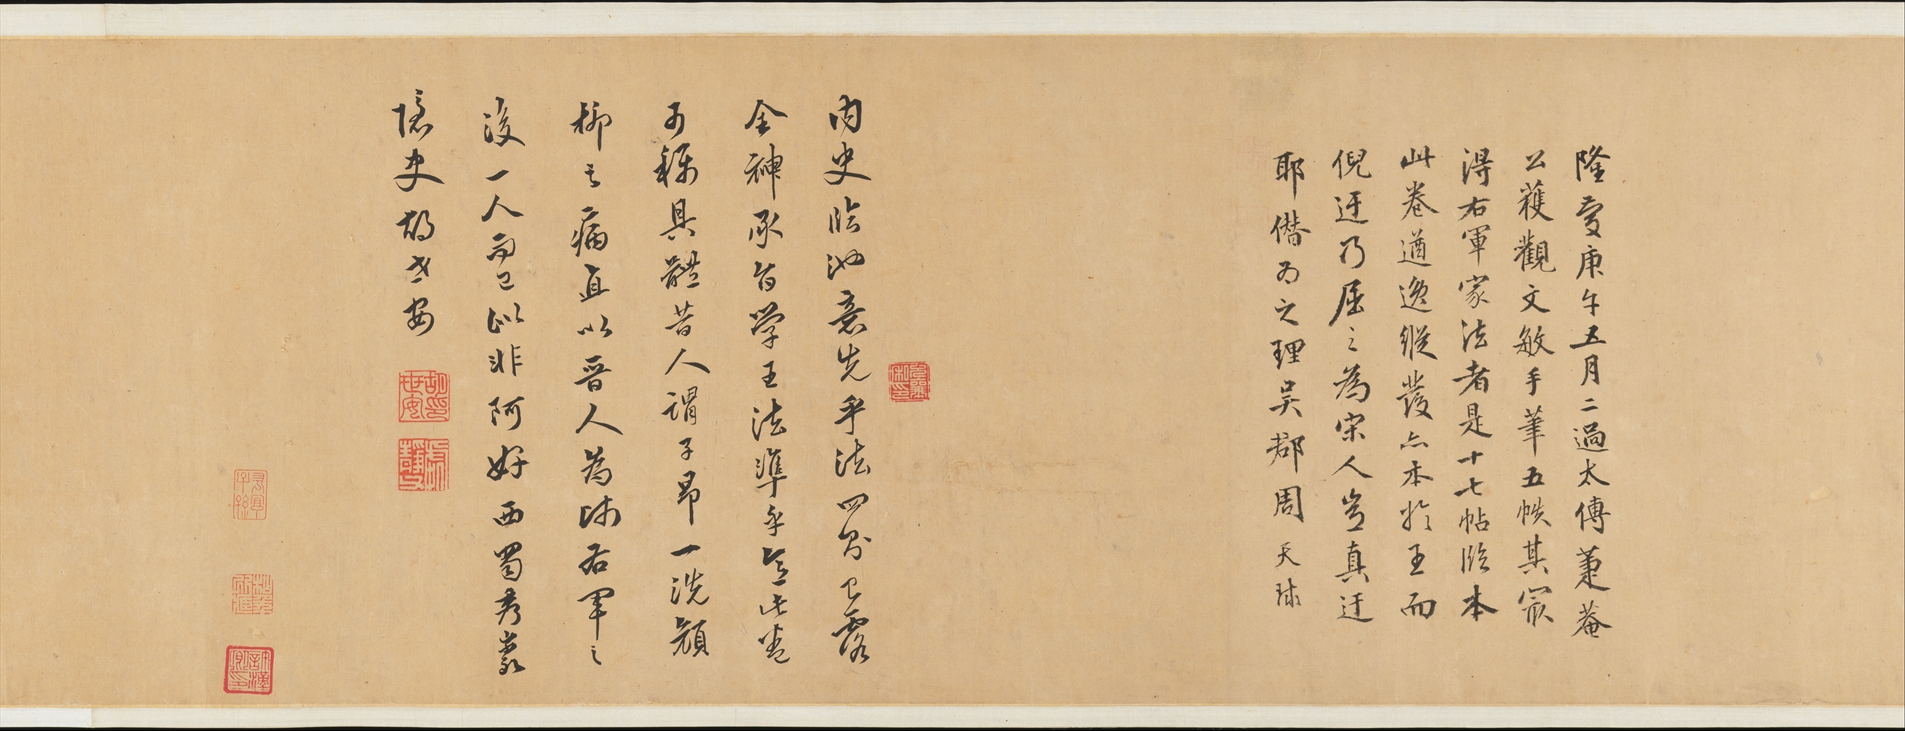 隆慶庚午五月二過太傅蕙菴
公獲觀文敏手筆五帙其最
得右軍家法者是十七帖臨本
此卷遒逸縱發亦本於王而
倪迂乃屈之為宋人豈真迂
耶僭為之理吳郡周天球
內史臨池意先乎法四勿卍露
全神承旨學王法準乎意此卷
可稱具體昔人謂子昂一洗顏
柳之病直以晉人為師右軍之
後一人而已似非阿好西蜀秀巖
隱史胡世安